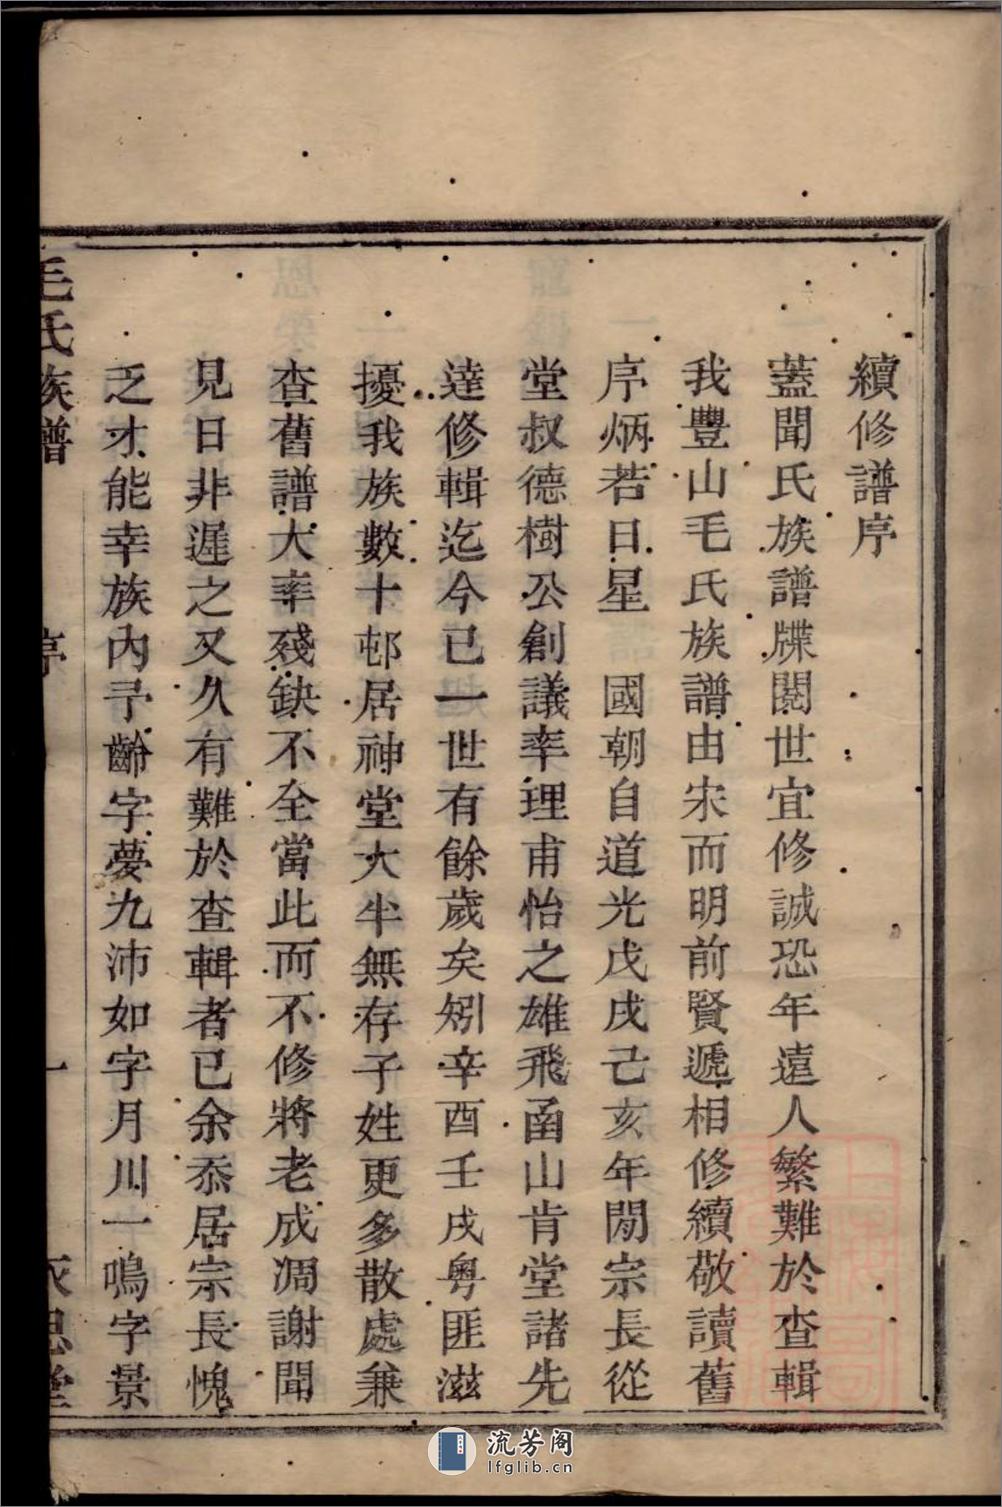 續修譜序
蓋聞氏族譜牒閱世宜修誠恐年遠人繁難於查輯
我豐山毛氏族譜由宋而明前賢遞相修續敬讀舊
序炳若日星　國朝自道光戊戌己亥年閒宗長從
堂叔德樹公創議率理甫怡之雄飛函山肯堂諸先
達修輯迄今已一世有餘歲矣矧辛酉壬戌粵匪滋
擾我族數十邨居神堂大半無存子姓更多散處兼
查舊譜大率殘缺不全當此而不修將老成凋謝聞
見日非遲之又久有難於查輯者已余忝居宗長愧
乏才能幸族內予齡字夢九沛如字月川一鳴字景
毛氏族譜
序
一
流芳阁
lfglib.cn